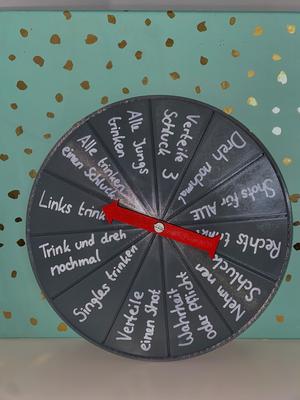 Verteile 3
Schluck
Dreh nochmal
Shots für ALLE
Rechts
Nehm nen
Schluck
Wahrheit
oder Pflicht
Verteile
einen Shot
Singles trinken
Trink und dreh
nochmal
Links trink
Alle trinken
einen Schluck
Alle Jungs
trinken